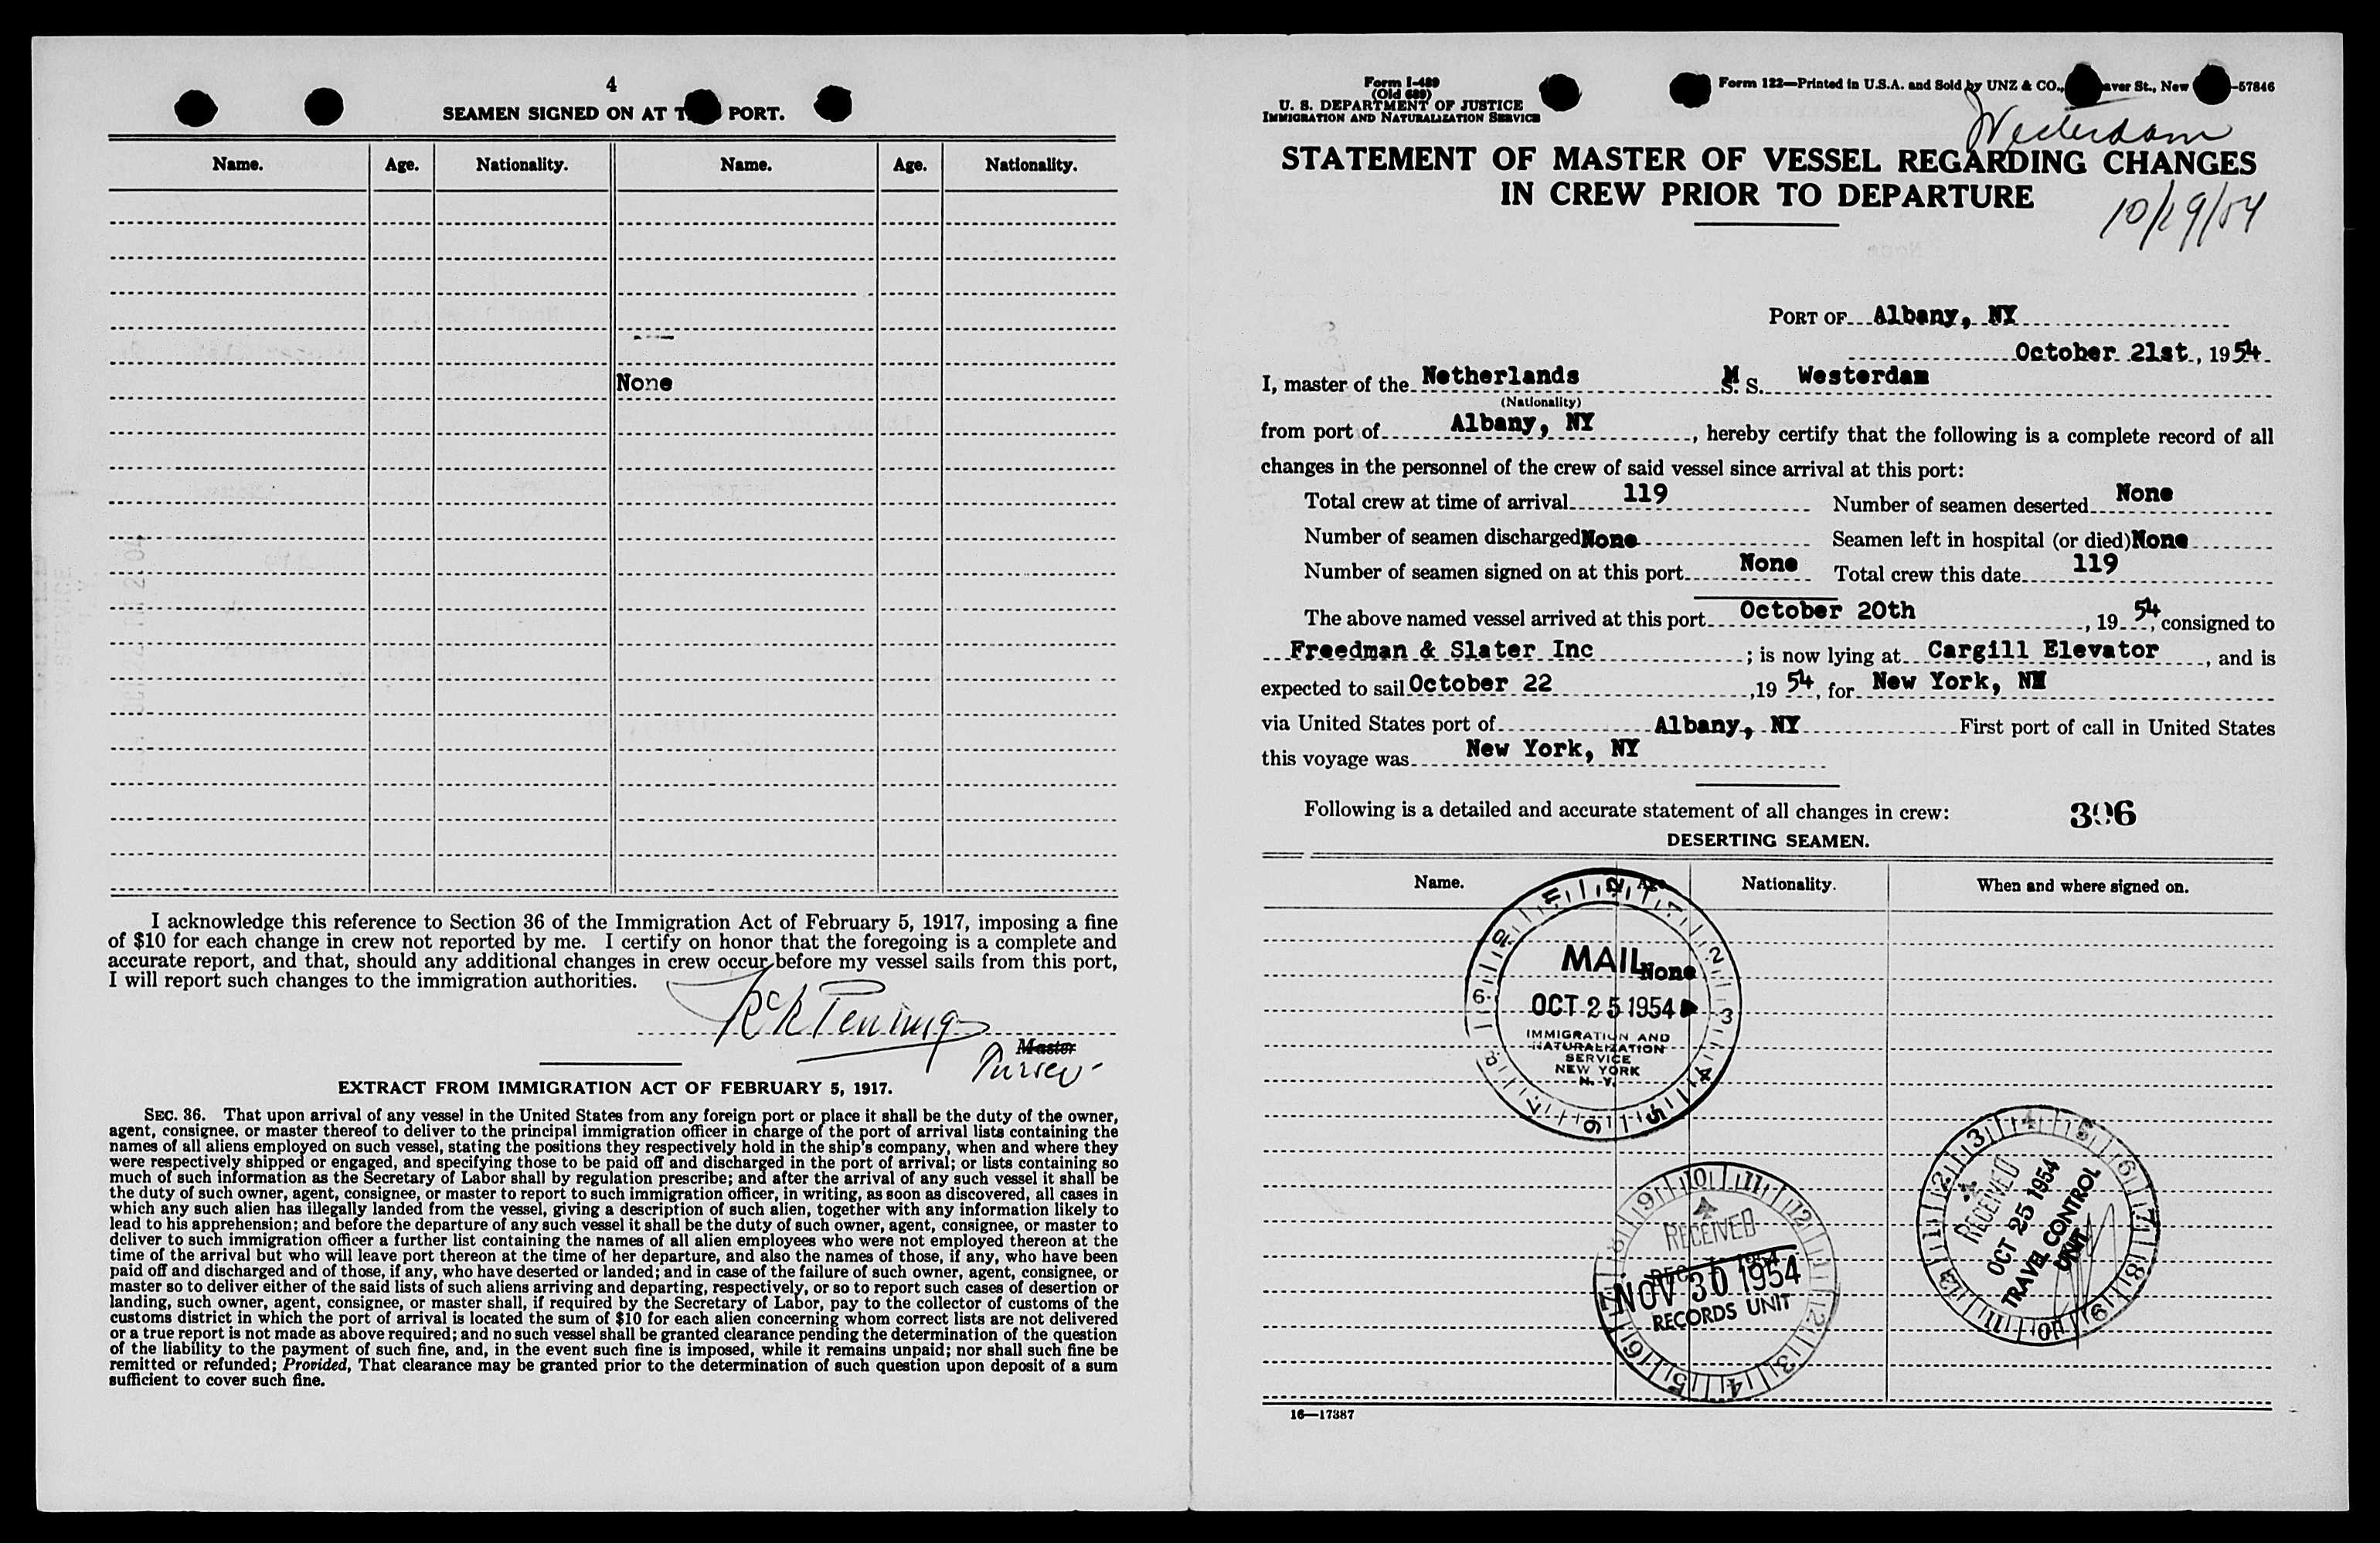 4
SEAMEN SIGNED ON AT T PORT.
Name. Age. Nationality. Name. Age. Nationality.
None
I acknowledge this reference to Section 36 of the Immigration Act of February 5, 1917, imposing a fine
of $10 for each change in crew not reported by me. I certify on honor that the foregoing is a complete and
accurate report, and that, should any additional changes in crew occur before my vessel sails from this port,
I will report such changes to the immigration authorities.
Master
Purser
EXTRACT FROM IMMIGRATION ACT OF FEBRUARY 5, 1917.
SEC. 36. That upon arrival of any vessel in the United States from any foreign port or place it shall be the duty of the owner,
agent, consignee, or master thereof to deliver to the principal immigration officer in charge of the port of arrival lists containing the
names of all aliens employed on such vessel, stating the positions they respectively hold in the ship's company, when and where they
were respectively shipped or engaged, and specifying those to be paid off and discharged in the port of arrival; or lists containing so
much of such information as the Secretary of Labor shall by regulation prescribe; and after the arrival of any such vessel it shall be
the duty of such owner, agent, consignee, or master to report to such immigration officer, in writing, as soon as discovered, all cases in
which any such alien has illegally landed from the vessel, giving a description of such alien, together with any information likely to
lead to his apprehension; and before the departure of any such vessel it shall be the duty of such owner, agent, consignee, or master to
deliver to such immigration officer a further list containing the names of all alien employees who were not employed thereon at the
time of the arrival but who will leave port thereon at the time of her departure, and also the names of those, if any, who have been
paid off and discharged and of those, if any, who have deserted or landed; and in case of the failure of such owner, agent, consignee, or
master so to deliver either of the said lists of such aliens arriving and departing, respectively, or so to report such cases of desertion or
landing, such owner, agent, consignee, or master shall, if required by the Secretary of Labor, pay to the collector of customs of the
customs district in which the port of arrival is located the sum of $10 for each alien concerning whom correct lists are not delivered
or a true report is not made as above required; and no such vessel shall be granted clearance pending the determination of the question
of the liability to the payment of such fine, and, in the event such fine is imposed, while it remains unpaid; nor shall such fine be
remitted or refunded; Provided, That clearance may be granted prior to the determination of such question upon deposit of a sum
sufficient to cover such fine.
Form I-489
(Old 689)
U. S. DEPARTMENT OF JUSTICE
IMMIGRATION AND NATURALIZATION SERVICE
Form 122—Printed in U.S.A. and Sold by UNZ & CO., aver St., New -57846
Westerdam
STATEMENT OF MASTER OF VESSEL REGARDING CHANGES
IN CREW PRIOR TO DEPARTURE
10/19/54
PORT OF Albany, NY
October 21st, 1954
I, master of the Netherlands M S. S. Westerdam
(Nationality)
from port of Albany, NY, hereby certify that the following is a complete record of all
changes in the personnel of the crew of said vessel since arrival at this port:
Total crew at time of arrival 119 Number of seamen deserted None
Number of seamen discharged None Seamen left in hospital (or died) None
Number of seamen signed on at this port None Total crew this date 119
The above named vessel arrived at this port October 20th, 19 54, consigned to
Freedman & Slater Inc; is now lying at Cargill Elevator, and is
expected to sail October 22, 19 54, for New York,
via United States port of Albany, NY First port of call in United States
this voyage was New York, NY
Following is a detailed and accurate statement of all changes in crew: 396
DESERTING SEAMEN.
Name. Nationality. When and where signed on.
None
MAIL
OCT 25 1954
IMMIGRATION AND
NATURALIZATION
SERVICE
NEW YORK
N. Y.
RECEIVED
NOV 30 1954
RECORDS UNIT
RECEIVED
OCT 25 1954
TRAVEL CONTROL
UNIT
16—17387